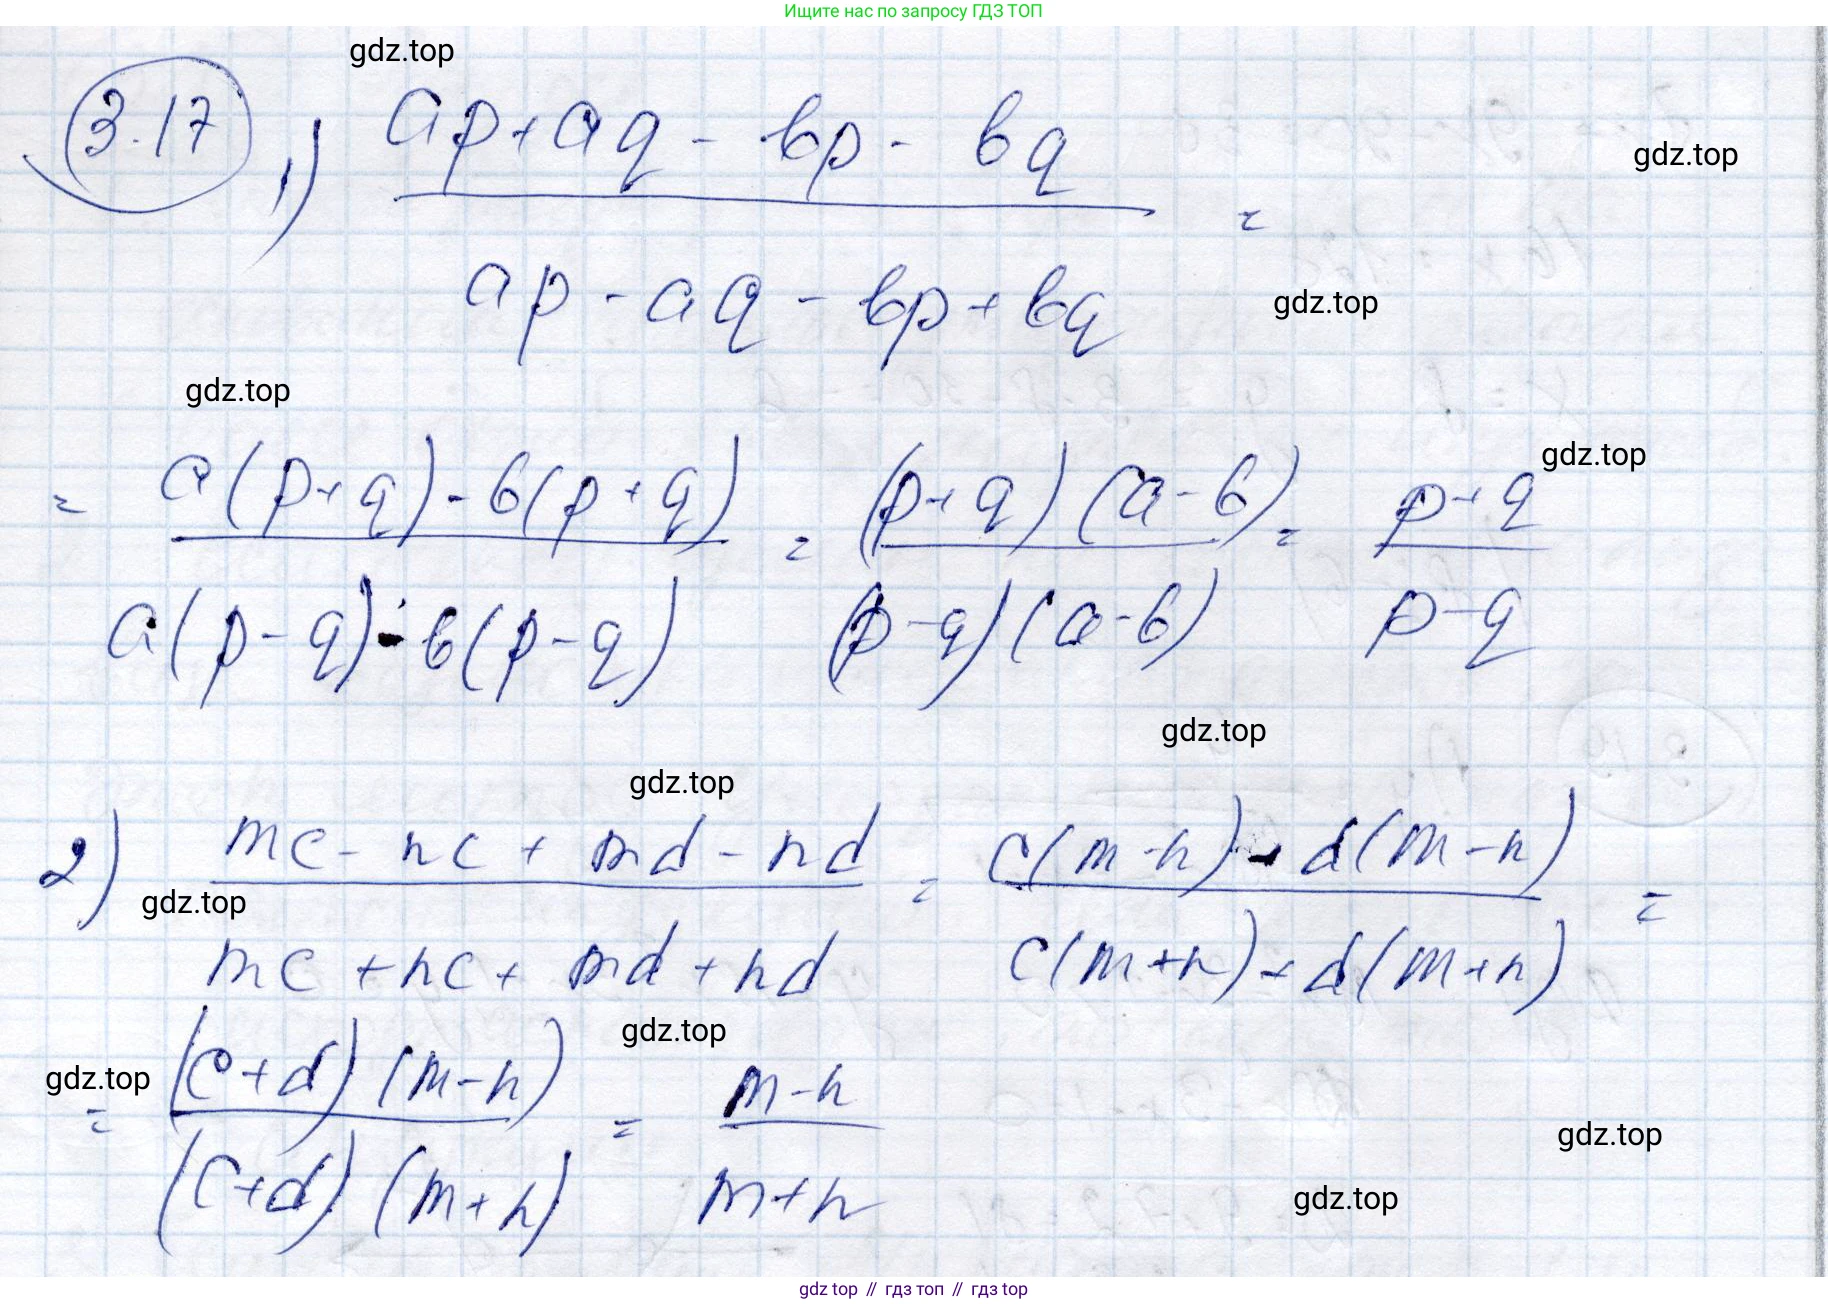 Ищите нас по запросу ГДЗ ТОП
gdz.top
3.17 1) (ap + aq - bp - bq) / (ap - aq - bp + bq) =
gdz.top
gdz.top
gdz.top
= (a(p + q) - b(p + q)) / (a(p - q) - b(p - q)) = ((p + q)(a - b)) / ((p - q)(a - b)) = (p + q) / (p - q)
gdz.top
gdz.top
gdz.top
2) (mc - nc + md - nd) / (mc + nc + md + nd) = (c(m - n) - d(m - n)) / (c(m + n) + d(m + n)) =
gdz.top
gdz.top
= ((c + d)(m - n)) / ((c + d)(m + n)) = (m - n) / (m + n)
gdz.top
gdz.top
gdz.top
gdz top // гдз топ // gdz top